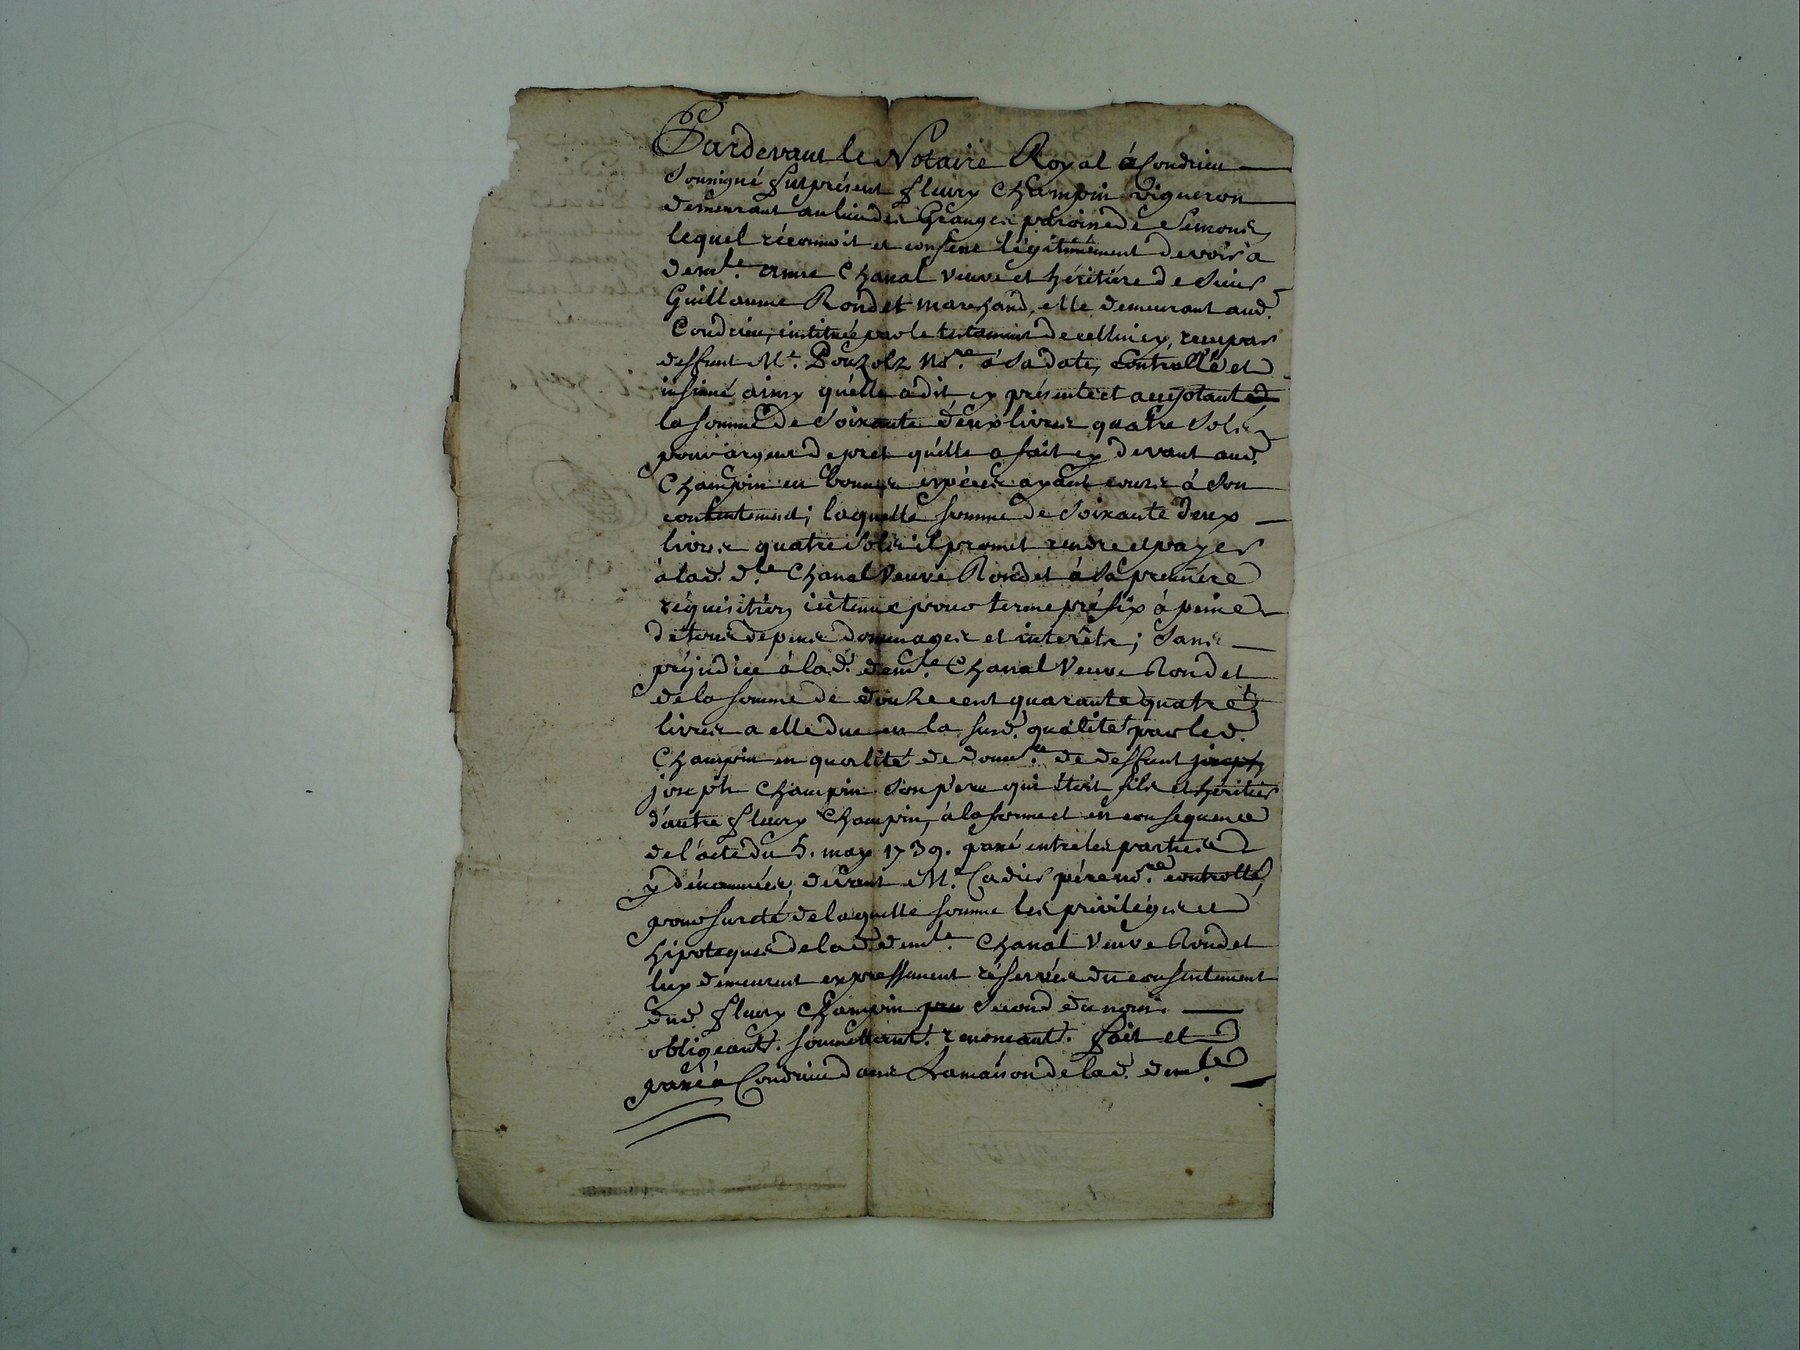 Pardevant le Notaire Royal à Condrieu
Sousigné fut présent fleury Champin vigneron
demeurant au lieu des Granges paroisse de Semons
lequel réconnoit et confesse légitimement devoir à
demle. anne Chanal veuve et héritiére de Sieur
Guillaume Rondet marchand, elle demeurant aud.
Condrieu, instituée par le testament de celluicy, reçu par
deffunt Me. Pouzolz nre. à sa date, Controllé et
insinué ainsy qu'elle a dit, cy présente et acceptante
la somme de Soixante deux livres quatre Sols
pour argent de pret qu'elle a fait cy devant aud.
Champin en bonnes espéces ayant cours à Son
contentement; laquelle somme de Soixante deux
livres quatre Sols il promet rendre et payer
à lad. dle. Chanal Veuve Rondet à Sa premiére
réquisition icy tenue pour terme préfix à peine
de tous depens dommages et interêts; Sans
préjudice à lad. demle. Chanal Veuve Rondet
de la somme de douze cent quarante quatre
livres a elle due en la susd. qualité par led.
Champin en qualité de de deffunt joseph
joseph Champin Son pére qui étoit fils et héritier
d'autre fleury Champin, à la forme et en consequence
de l'acte du 5. may 1739. passé entre les parties
y dénommées, devant Me. Cadier pére nore. controllé,
pour sureté de laquelle somme les priviléges et
hipoteques de lad. demle. Chanal Veuve Rondet
luy demeurent expressement réservés du consentement
dud. fleury Champin Second du nom.
obligeant. soumettant. renonceant. fait et
passé à Condrieu dans La maison de lad. demle